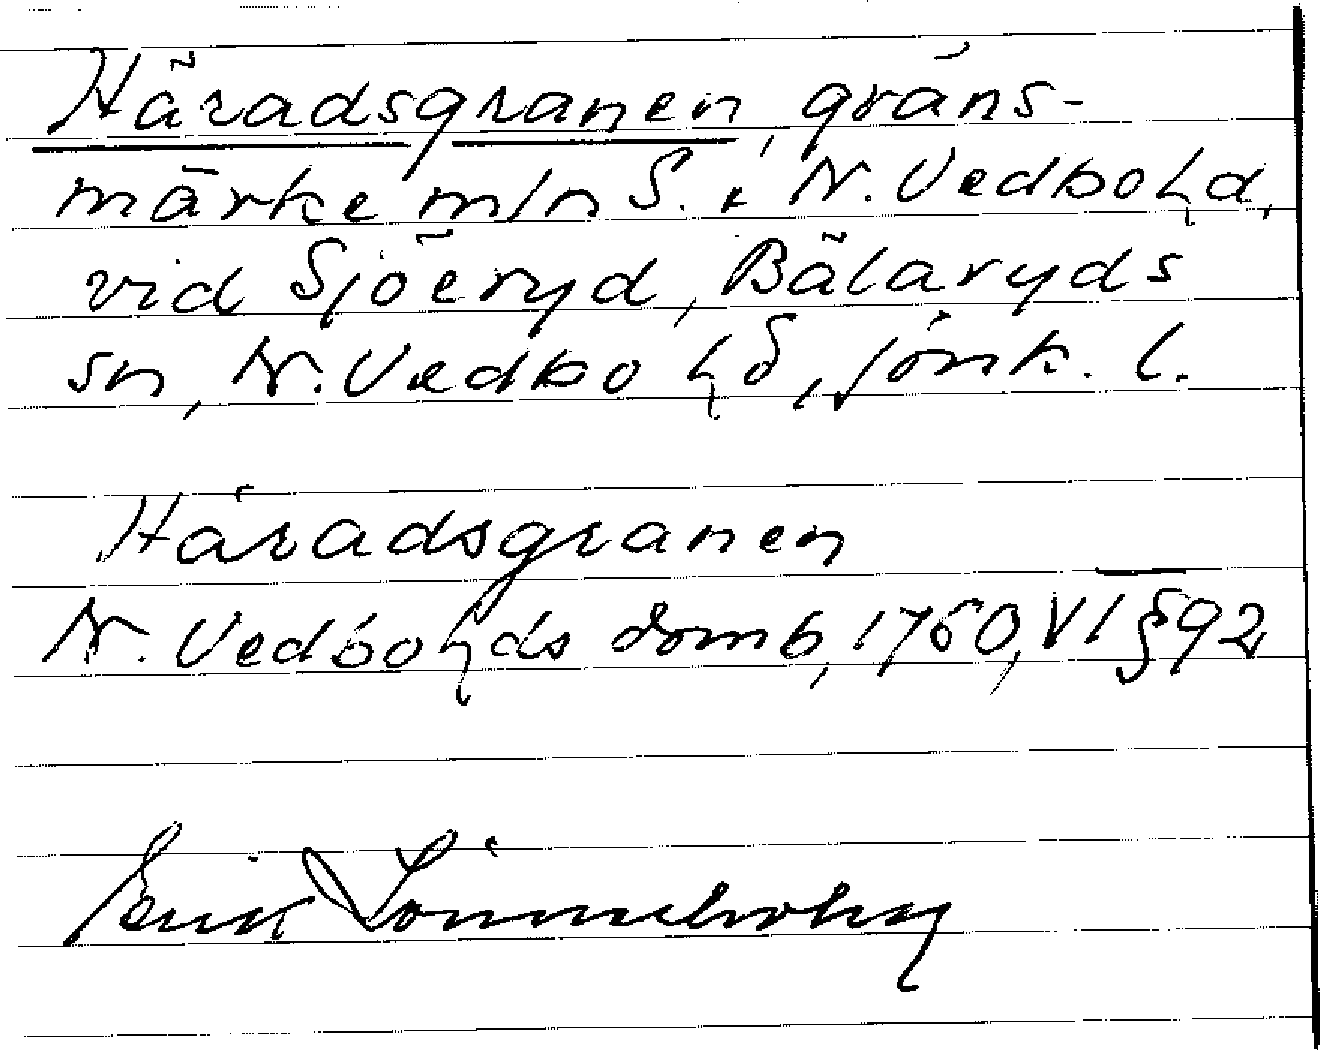 Häradsgranen, gräns-
märke mln S. & N. Vedbo hd,
vid Sjöeryd, Bälaryds
sn, N. Vedbo hd, Jönk. l.
Häradsgranen
N. Vedbo hds domb, 1760, VI § 92
Erik